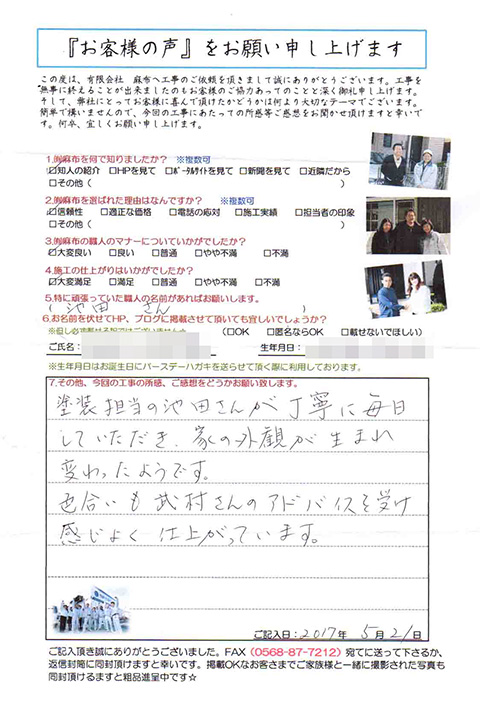 『お客様の声』をお願い申し上げます
この度は、有限会社 麻布へ工事のご依頼を頂きまして誠にありがとうございます。工事を
無事に終えることが出来ましたのもお客様のご協力あってのことと深く御礼申し上げます。
そして、弊社にとってお客様に喜んで頂けたかどうかは何より大切なテーマでございます。
簡単で構いませんので、今回の工事にあたっての所感等ご感想をお聞かせ頂けますと幸いで
す。何卒、宜しくお願い申し上げます。
1.㈲麻布を何で知りましたか? ※複数可
☑知人の紹介 □HPを見て □ポータルサイトを見て □新聞を見て □近隣だから
□その他( )
2.㈲麻布を選ばれた理由はなんですか? ※複数可
☑信頼性 □適正な価格 □電話の応対 □施工実績 □担当者の印象
□その他( )
3.㈲麻布の職人のマナーについていかがでしたか?
☑大変良い □良い □普通 □やや不満 □不満
4.施工の仕上がりはいかがでしたか?
☑大変満足 □満足 □普通 □やや不満 □不満
5.特に頑張っていた職人の名前があればお願いします。
( 池田 さん )
6.お名前を伏せてHP、ブログに掲載させて頂いても宜しいでしょうか?
(□OK □匿名ならOK □載せないでほしい)
ご氏名: 生年月日:
※生年月日はお誕生日にバースデーハガキを送らせて頂く際に利用しております。
7.その他、今回の工事の所感、ご感想をどうかお願い致します。
塗装担当の池田さんが丁寧に毎日
していただき、家の外観が生まれ
変わったようです。
色合いも武村さんのアドバイスを受け
感じよく仕上がっています。
ご記入日:2017年 5月 21日
ご記入頂き誠にありがとうございました。FAX(0568-87-7212)宛てに送って下さるか、
返信封筒に同封頂けますと幸いです。掲載OKなお客さまでご家族様と一緒に撮影された写真も
同封頂けるますと粗品進呈中です☆